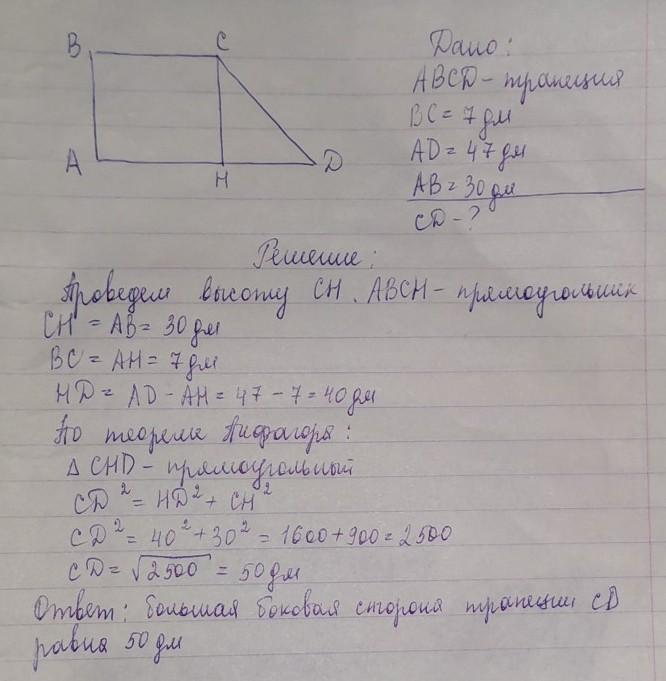 B C
A H D
Дано:
ABCD - трапеция
BC = 7 дм
AD = 47 дм
AB = 30 дм
CD - ?
Решение:
Проведем высоту CH. ABCH - прямоугольник
CH = AB = 30 дм
BC = AH = 7 дм
HD = AD - AH = 47 - 7 = 40 дм
По теореме Пифагора:
△ CHD - прямоугольный
CD² = HD² + CH²
CD² = 40² + 30² = 1600 + 900 = 2500
CD = √2500 = 50 дм
Ответ: большая боковая сторона трапеции CD
равна 50 дм